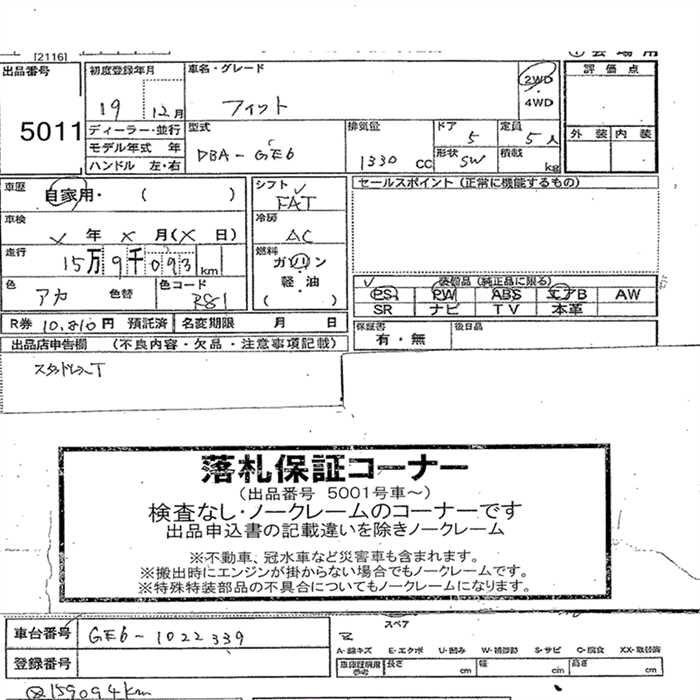 [2116]
出品番号 5011
初度登録年月 19 12月
車名・グレード フィット
2WD
4WD
評価点
外装 内装
ディーラー・並行
モデル年式 年
ハンドル 左・右
型式 DBA-GE6
排気量 1330 CC
ドア 5
形状 SW
定員 5人
積載 kg
車歴 自家用・( )
車検 年 月( 日)
走行 15万9千093km
色 アカ 色替
色コード R81
シフト FAT
冷房 AC
燃料 ガソリン
軽・油
( )
セールスポイント (正常に機能するもの)
装備品 (純正品に限る)
PS PW ABS エアB AW
SR ナビ TV 本革
R券 10,810円 預託済 名変期限 月 日
保証書 有・無
後日品
出品店申告欄 (不良内容・欠品・注意事項記載)
落札保証コーナー
(出品番号 5001号車～)
検査なし・ノークレームのコーナーです
出品申込書の記載違いを除きノークレーム
※不動車、冠水車など災害車も含まれます。
※搬出時にエンジンが掛からない場合でもノークレームです。
※特殊特装部品の不具合についてもノークレームになります。
車台番号 GE6-1022339
登録番号
スペア
A-線キズ E-エクボ U-凹み W-補修跡 S-サビ C-腐食 XX-取替済
長さ cm 幅 cm 高さ cm
159094km